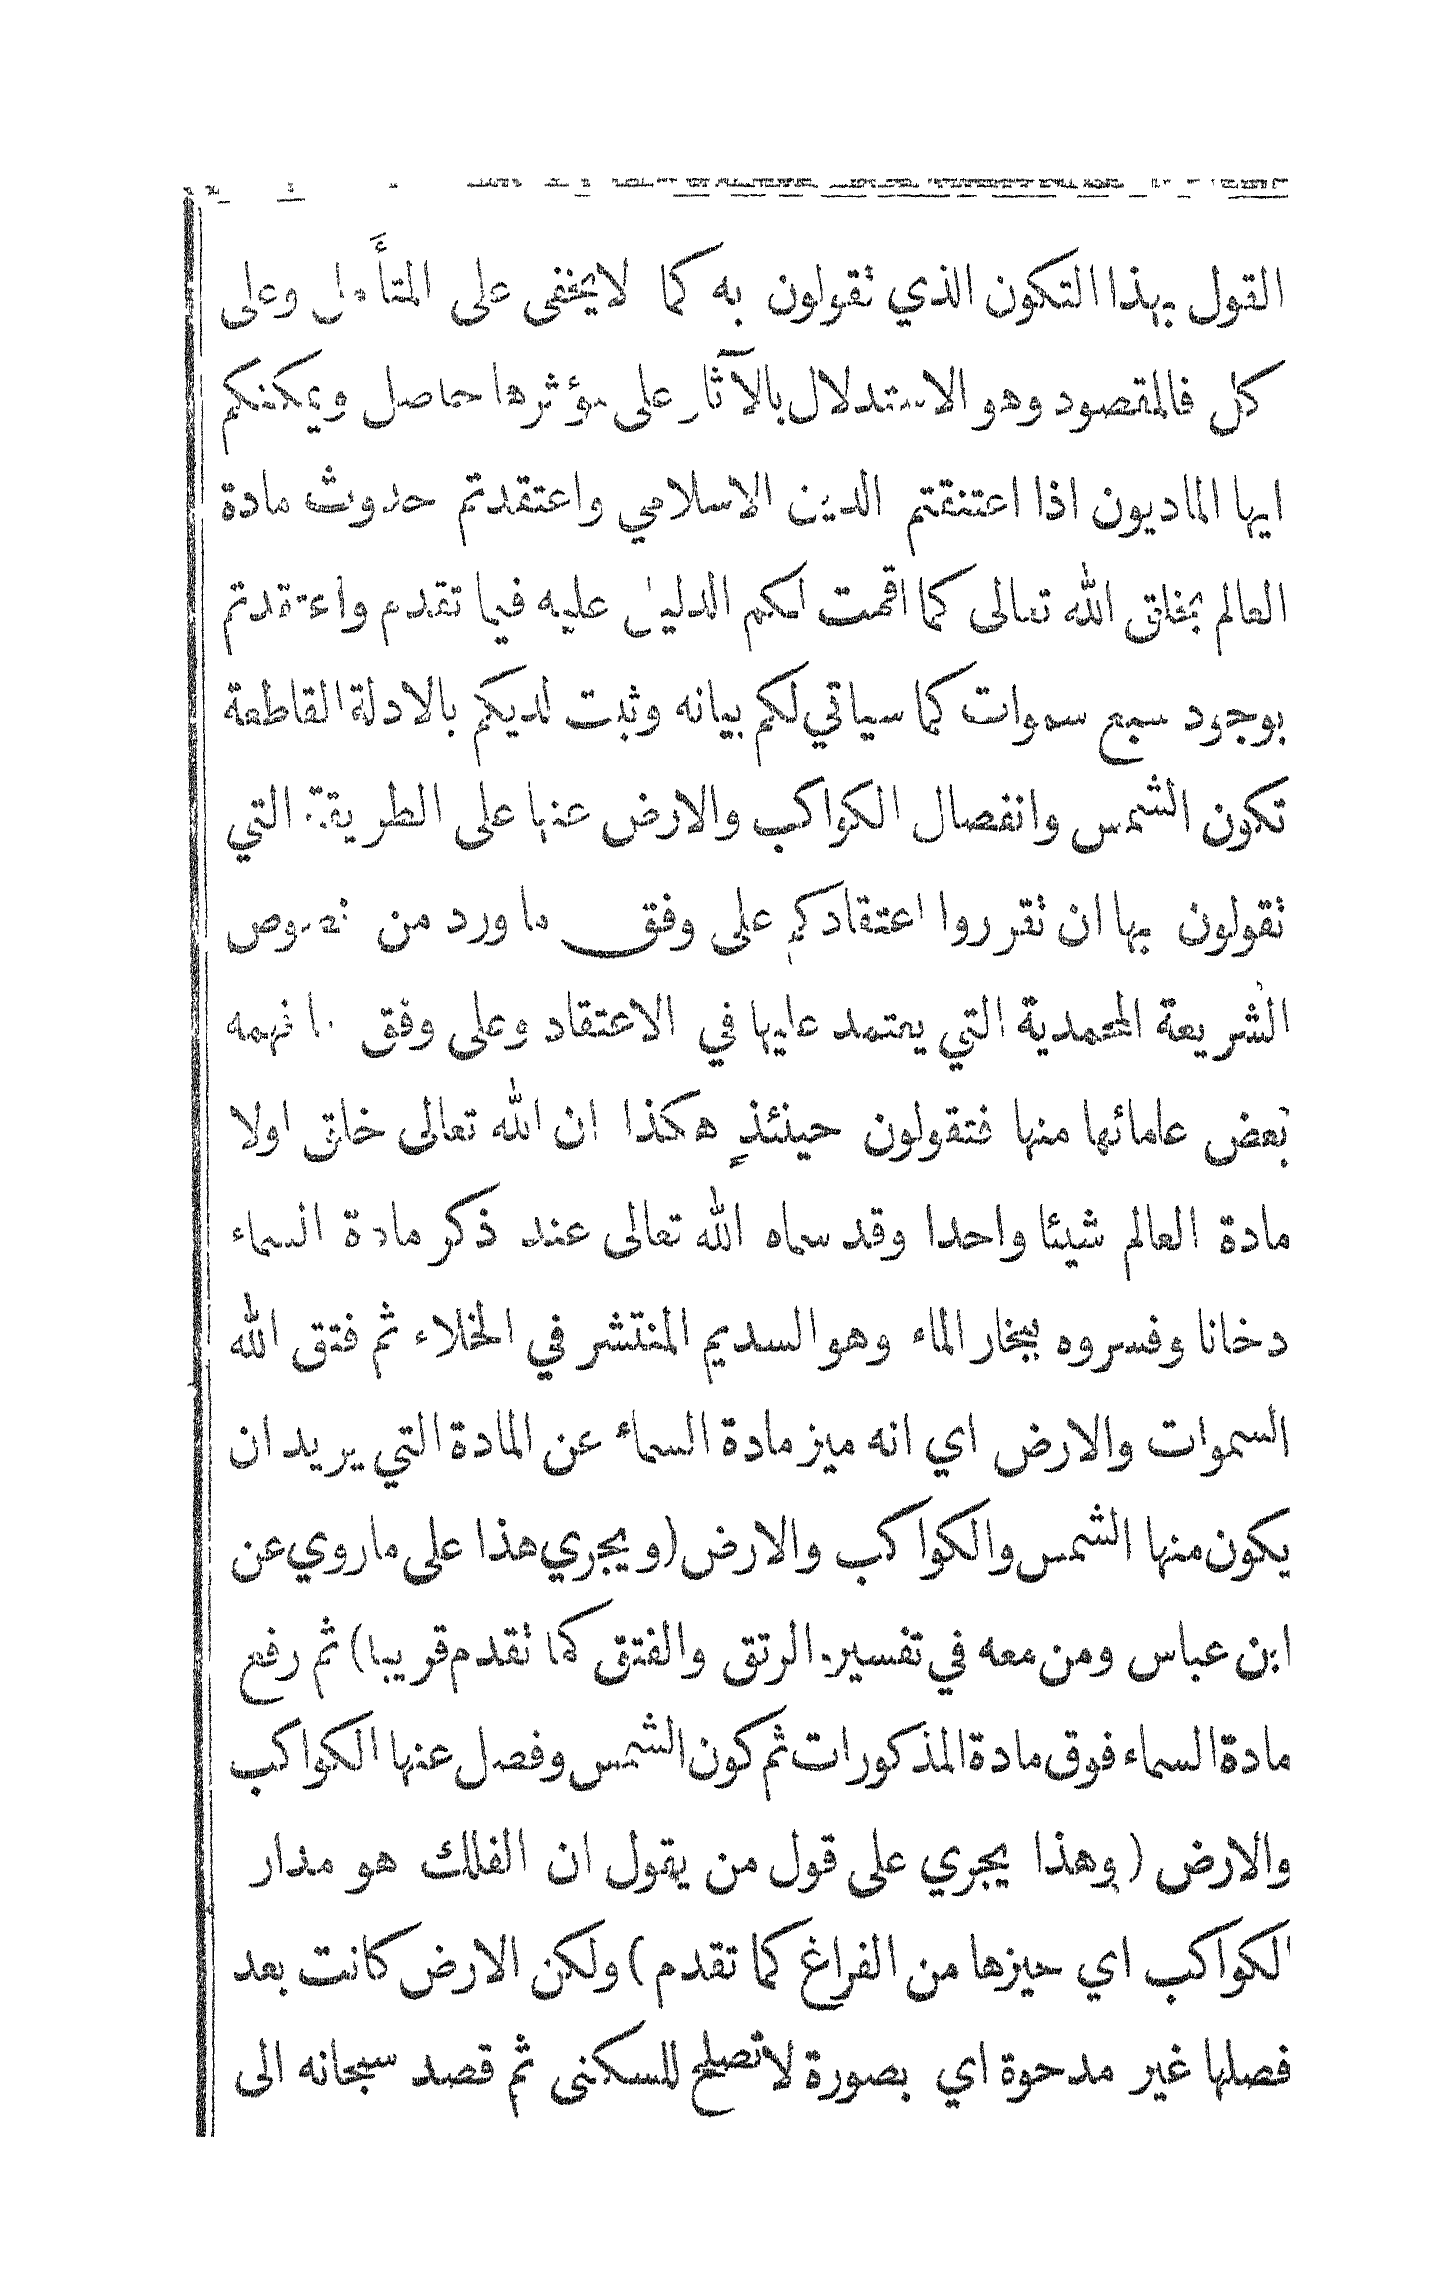 القول بهذا التكون الذي تقولون به كما لايخفى على المتأمل وعلى
كل فالمقصود وهو الاستدلال بالآثار على مؤثرها حاصل ويمكنكم
ايها الماديون اذا اعتنقتم الدين الاسلامي واعتقدتم حدوث مادة
العالم بخلق الله تعالى كما اقمت لكم الدليل عليه فيما تقدم واعتقدتم
بوجود سبع سموات كما سياتي لكم بيانه وثبت لديكم بالادلة القاطعة
تكون الشمس وانفصال الكواكب والارض عنها على الطريقة التي
تقولون بها ان تقرروا اعتقادكم على وفق ما ورد من نصوص
الشريعة المحمدية التي يعتمد عليها في الاعتقاد وعلى وفق ما فهمه
بعض علمائها منها فتقولون حينئذٍ هكذا ان الله تعالى خلق اولا
مادة العالم شيئا واحدا وقد سماه الله تعالى عند ذكر مادة السماء
دخانا وفسروه ببخار الماء وهو السديم المنتشر في الخلاء ثم فتق الله
السموات والارض اي انه ميز مادة السماء عن المادة التي يريد ان
يكون منها الشمس والكواكب والارض (ويجري هذا على ماروي عن
ابن عباس ومن معه في تفسير الرتق والفتق كما تقدم قريبا) ثم رفع
مادة السماء فوق مادة المذكورات ثم كون الشمس وفصل عنها الكواكب
والارض (وهذا يجري على قول من يقول ان الفلك هو مدار
الكواكب اي حيزها من الفراغ كما تقدم) ولكن الارض كانت بعد
فصلها غير مدحوة اي بصورة لاتصلح للسكنى ثم قصد سبحانه الى